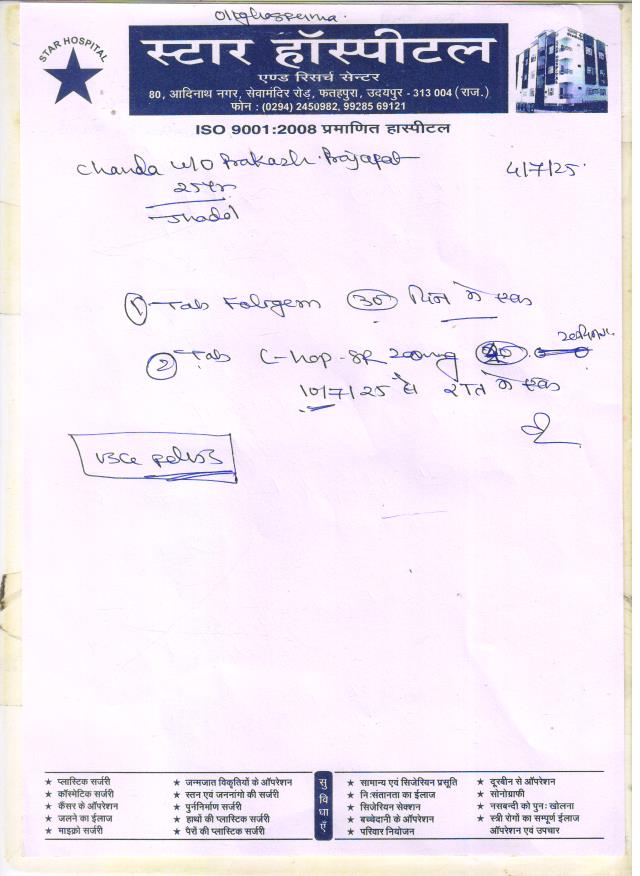 Olighosperma.
STAR HOSPITAL
स्टार हॉस्पीटल
एण्ड रिसर्च सेन्टर
80, आदिनाथ नगर, सेवामंदिर रोड़, फतहपुरा, उदयपुर - 313 004 (राज.)
फोन : (0294) 2450982, 99285 69121
ISO 9001:2008 प्रमाणित हास्पीटल
Chanda W/O Prakash Prajapat
4/7/25
25yr
Jhadol
① Tab Foligem 30 दिन में एक
② Tab C-nop-SR 200mg
10/7/25 से रात में एक
USG pelvis
★ प्लास्टिक सर्जरी
★ कॉस्मेटिक सर्जरी
★ कैंसर के ऑपरेशन
★ जलने का ईलाज
★ माइक्रो सर्जरी
★ जन्मजात विकृतियों के ऑपरेशन
★ स्तन एवं जननांगो की सर्जरी
★ पुर्ननिर्माण सर्जरी
★ हाथों की प्लास्टिक सर्जरी
★ पैरों की प्लास्टिक सर्जरी
सुविधाएँ
★ सामान्य एवं सिजेरियन प्रसूति
★ नि:संतानता का ईलाज
★ सिजेरियन सेक्शन
★ बच्चेदानी के ऑपरेशन
★ परिवार नियोजन
★ दूरबीन से ऑपरेशन
★ सोनोग्राफी
★ नसबन्दी को पुन: खोलना
★ स्त्री रोगों का सम्पूर्ण ईलाज
ऑपरेशन एवं उपचार